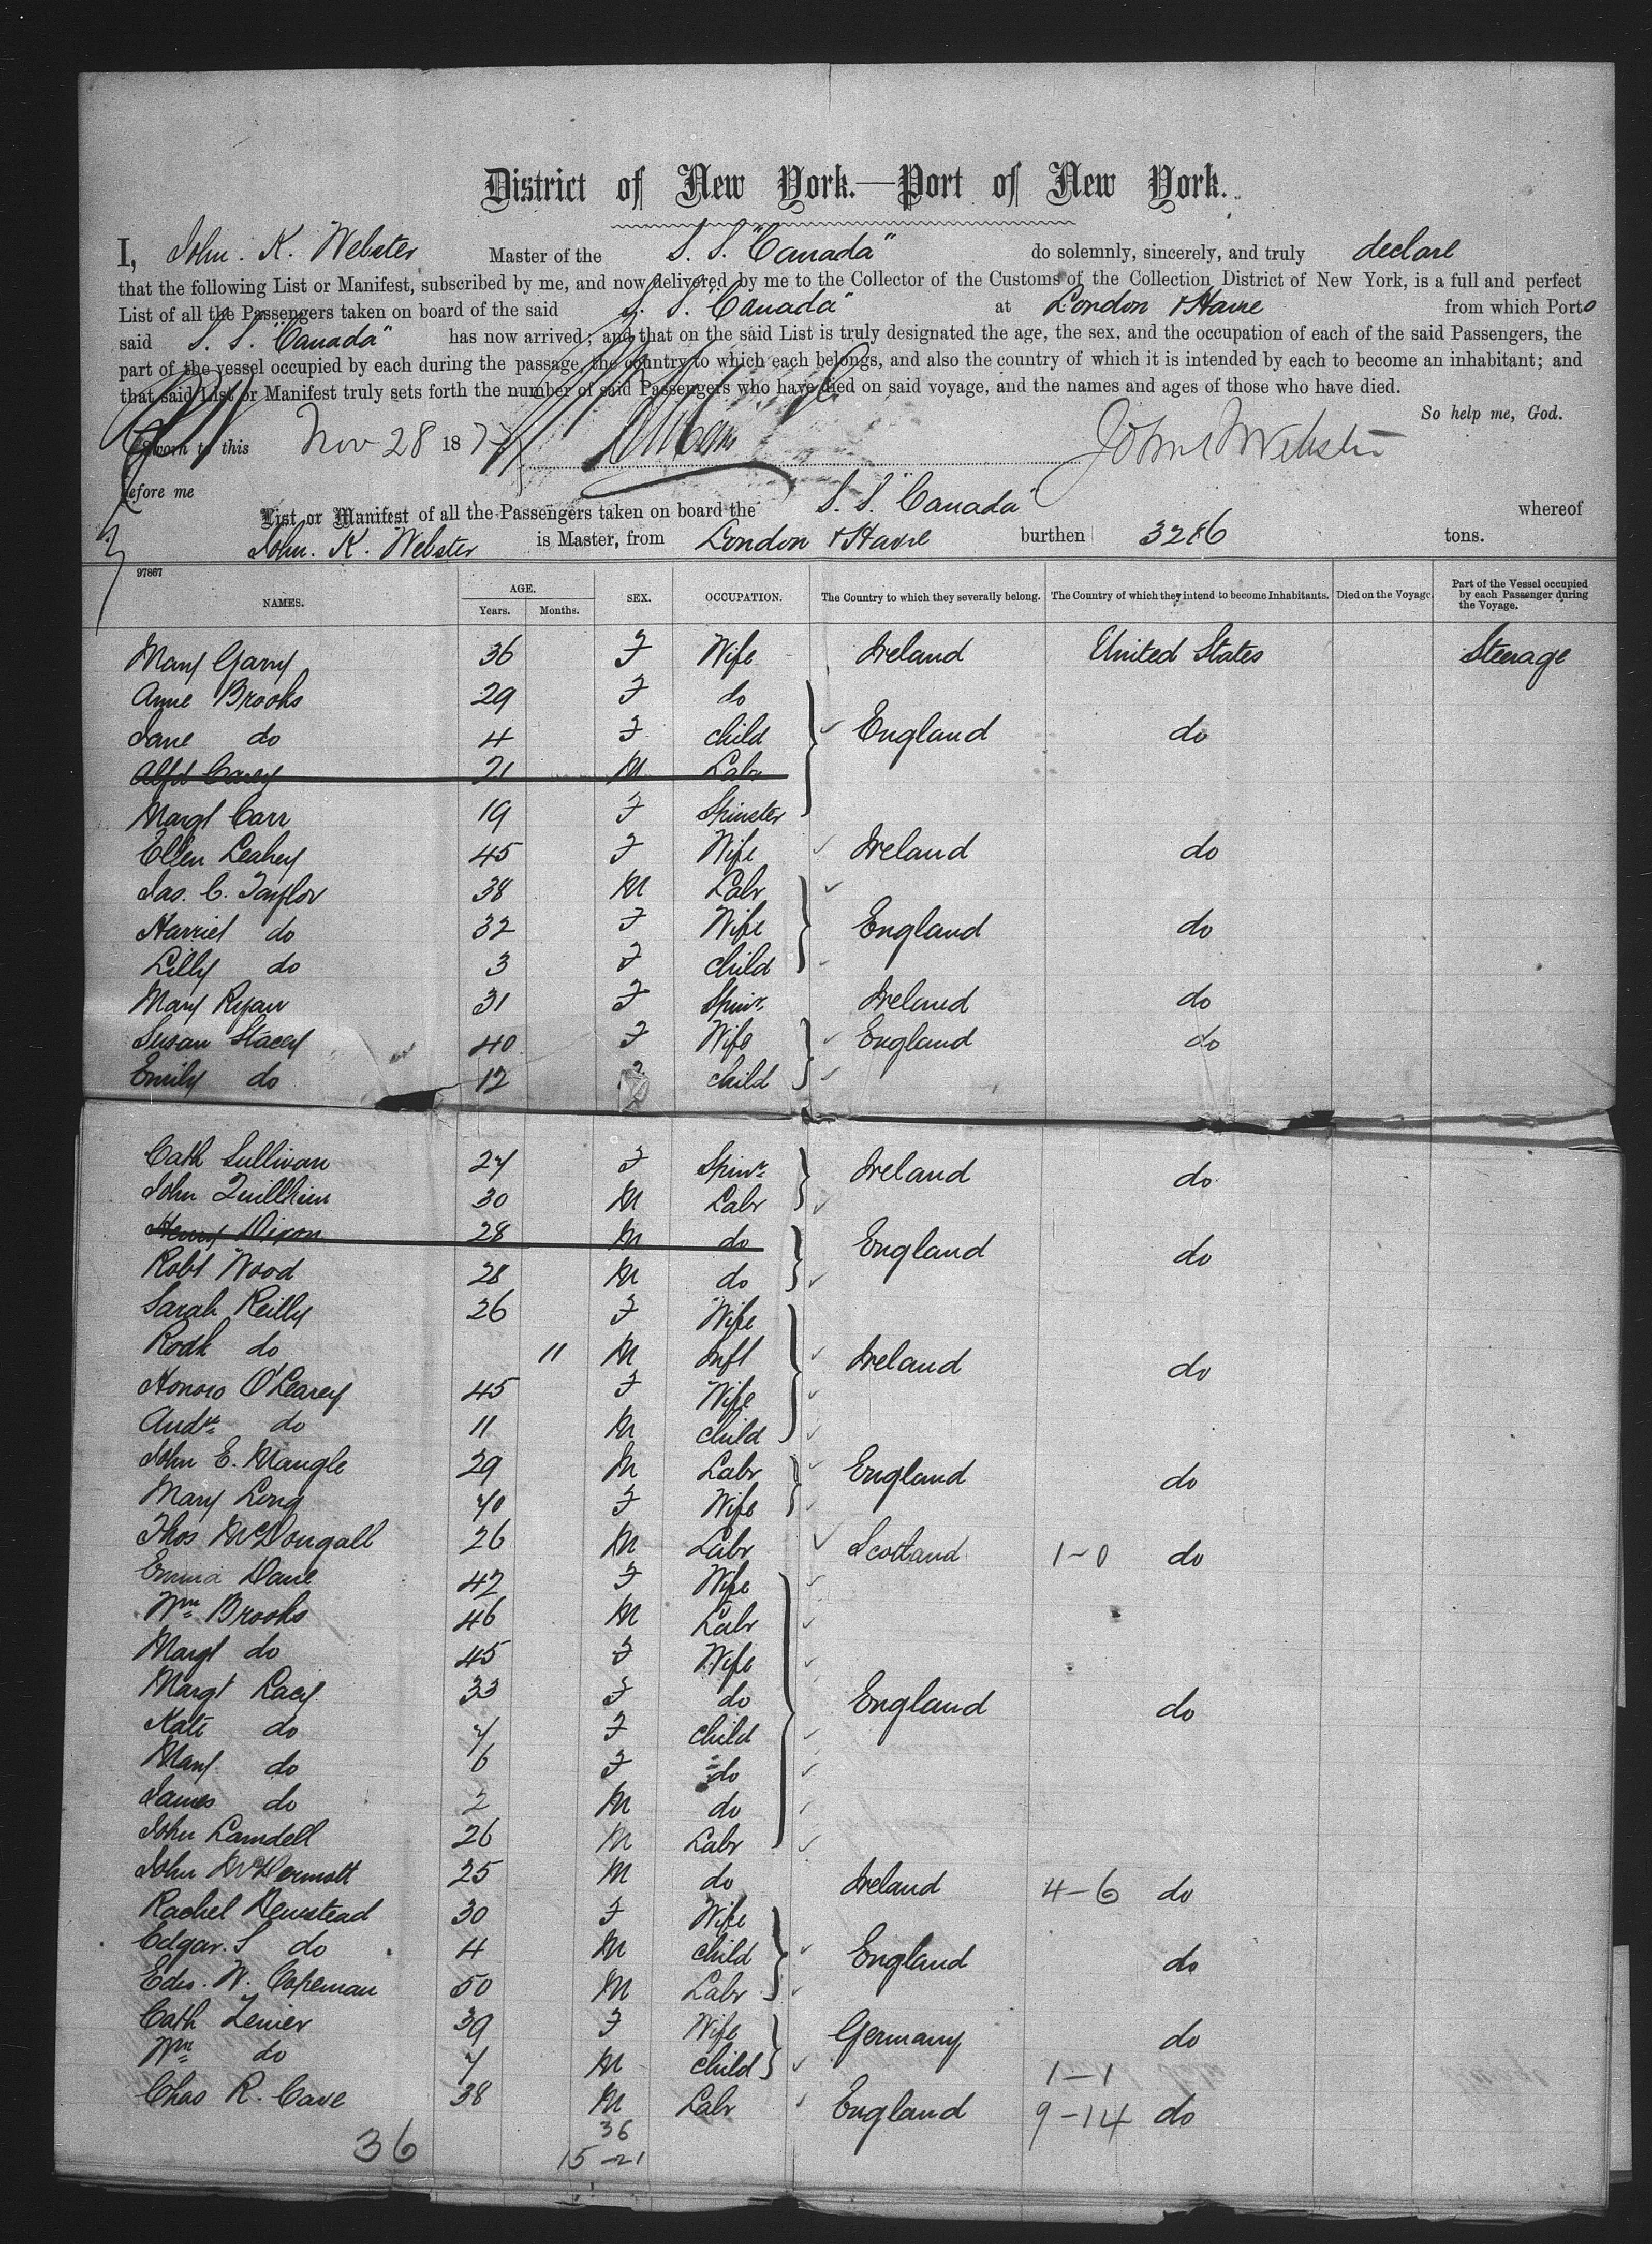 District of New York.—Port of New York.
I, John. K. Webster Master of the S. S. "Canada" do solemnly, sincerely, and truly declare
that the following List or Manifest, subscribed by me, and now delivered by me to the Collector of the Customs of the Collection District of New York, is a full and perfect
List of all the Passengers taken on board of the said S. S. "Canada" at London & Havre from which Port
said S. S. "Canada" has now arrived; and that on the said List is truly designated the age, the sex, and the occupation of each of the said Passengers, the
part of the vessel occupied by each during the passage, the country to which each belongs, and also the country of which it is intended by each to become an inhabitant; and
that said List or Manifest truly sets forth the number of said Passengers who have died on said voyage, and the names and ages of those who have died.
So help me, God.
Sworn to this Nov 28 187 John K Webster
before me
List or Manifest of all the Passengers taken on board the S. S. "Canada" whereof
John. K. Webster is Master, from London & Havre burthen 3286 tons.
97867
NAMES. AGE. Years. Months. SEX. OCCUPATION. The Country to which they severally belong. The Country of which they intend to become Inhabitants. Died on the Voyage. Part of the Vessel occupied by each Passenger during the Voyage.
Mary Garry 36 F Wife Ireland United States Steerage
Anne Brooks 29 F do
Jane do 4 F child England do
Alfd Carey 21 M Labr
Margt Carr 19 F Spinster
Ellen Leahey 45 F Wife Ireland do
Jas. C. Taylor 38 M Labr
Harriet do 32 F Wife England do
Lilly do 3 F child
Mary Ryan 31 F Spinr Ireland do
Susan Stacey 40 F Wife England do
Emily do 12 child
Cath Sullivan 27 F Spinr Ireland do
John 30 M Labr
Henry Dixon 28 M do England do
Robt Wood 28 M do
Sarah Reilly 26 F Wife
Rodk do 11 M Inft Ireland do
Honora O'Learey 45 F Wife
Andw do 11 M child
John E. Mangle 29 M Labr England do
Mary Long 40 F Wife
Thos McDougall 26 M Labr Scotland 1-0 do
Emma Dane 42 F Wife
Wm Brooks 46 M Labr
Margt do 45 F Wife
Margt Lacy 33 F do England do
Kate do 7 F child
Mary do 6 F do
James do 2 M do
John Lamdell 26 M Labr
John McDermott 25 M do Ireland 4-6 do
Rachel Hemstead 30 F Wife
Edgar. S do 4 M child England do
Edw. W. Copeman 50 M Labr
Cath Zenier 39 F Wife Germany do
Wm do 7 M child 1-1
Chas R. Cave 38 M Labr England 9-14 do
36 36
15-21